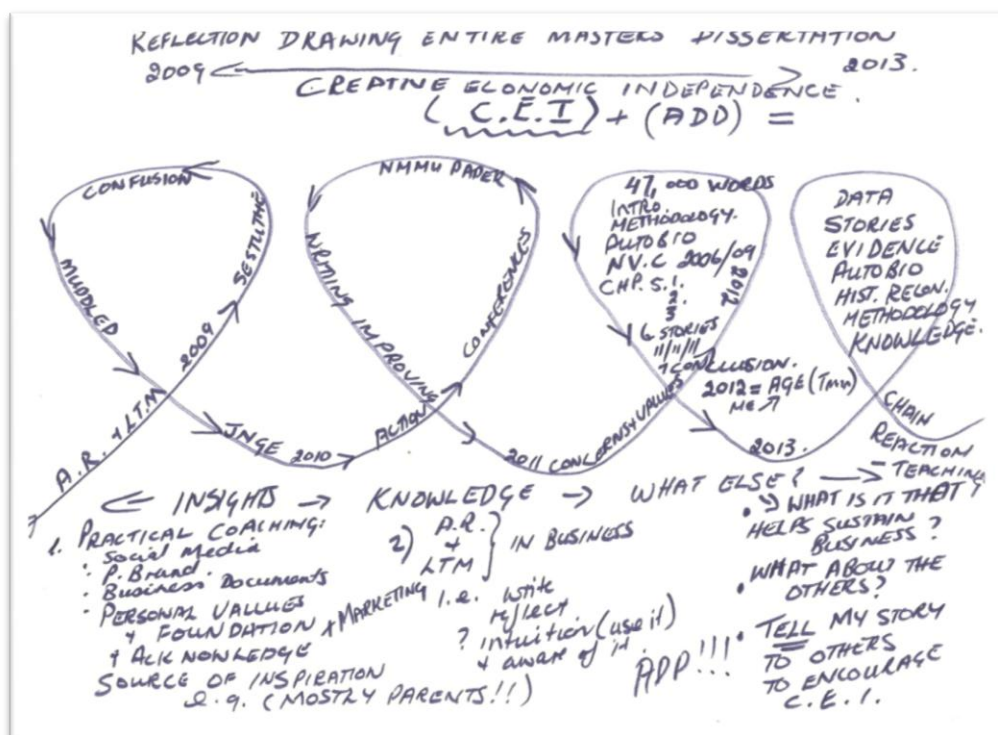 REFLECTION DRAWING ENTIRE MASTERS DISSERTATION
2009 2013.
CREATIVE ECONOMIC INDEPENDENCE.
(C.E.I) + (ADD) =
A.R. + LTM 2009 SESTUTHE
CONFUSION
MUDDLED
JNGE 2010 ACTION CONFERENCES
NMMU PAPER
WRITING IMPROVING
2011 CONCERNS/VALUES 2012
47,000 WORDS
INTRO.
METHODOLOGY.
AUTOBIO
NV.C 2006/09
CHP. 5.1.
2.
3
6 STORIES
11/11/11
+ CONCLUSION.
2012 = AGE (Tmn)
ME
2013.
DATA
STORIES
EVIDENCE
AUTOBIO
HIST. RECON.
METHODOLOGY
KNOWLEDGE.
CHAIN
REACTION
TEACHING
INSIGHTS → KNOWLEDGE → WHAT ELSE? →
1. PRACTICAL COACHING:
: Social Media
: P. Brand.
· Business Documents
· PERSONAL VALLUES
+ FOUNDATION + MARKETING
+ ACKNOWLEDGE
SOURCE OF INSPIRATION
e.g. (MOSTLY PARENTS!!)
2) A.R.
+
LTM
} IN BUSINESS
I.e. write
reflect
? intuition (use it)
+ aware of it.
ADD!!!
• WHAT IS IT THAT
HELPS SUSTAIN
BUSINESS?
• WHAT ABOUT THE
OTHERS?
• TELL MY STORY
TO OTHERS
TO ENCOURAGE
C.E.I.